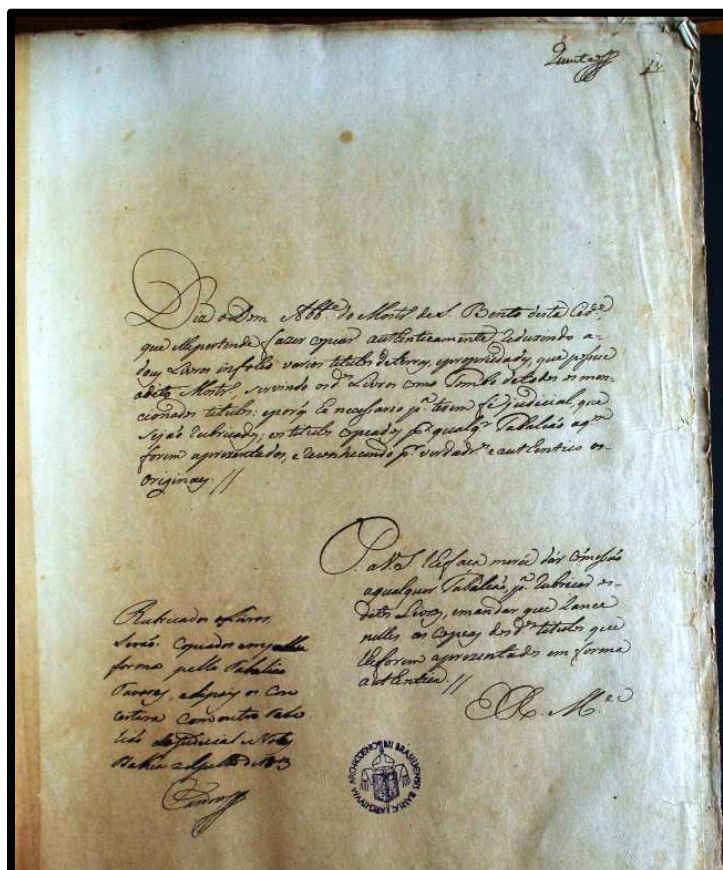 Diz o Dom Abb.e do Mostr.o de S. Bento desta Cid.e
que elle pertende fazer copear authenticamente, reduzindo a
dous Livros in folio varios titulos de terras, e propriedades, que possue
o dito Mostr.o, servindo os d.os Livros como Tombo de todos os men-
cionados titulos: e porq he necessario p.a terem fé judicial, que
sejão rubricados, e os titulos copeados p.r qualq.r Tabalião a q.m
forem aprezentados, e reconhecendo p.r verdadr.os e authenticos os
originaes //
P. a V. S. lhe faça mercê dar comissão
a qualquer Tabalião, p.a rubricar os
ditos Livros, e mandar que lance
nelles as copeas dos d.os titulos que
lhe forem aprezentados em forma
authentica //
E. R. M.ce
Rubricados os Livros
serão copeados em
forma pello Tabalião
Tavares, e depois os con
certará com outro Taba
lião do Judicial e Notas
Bahia de 1803